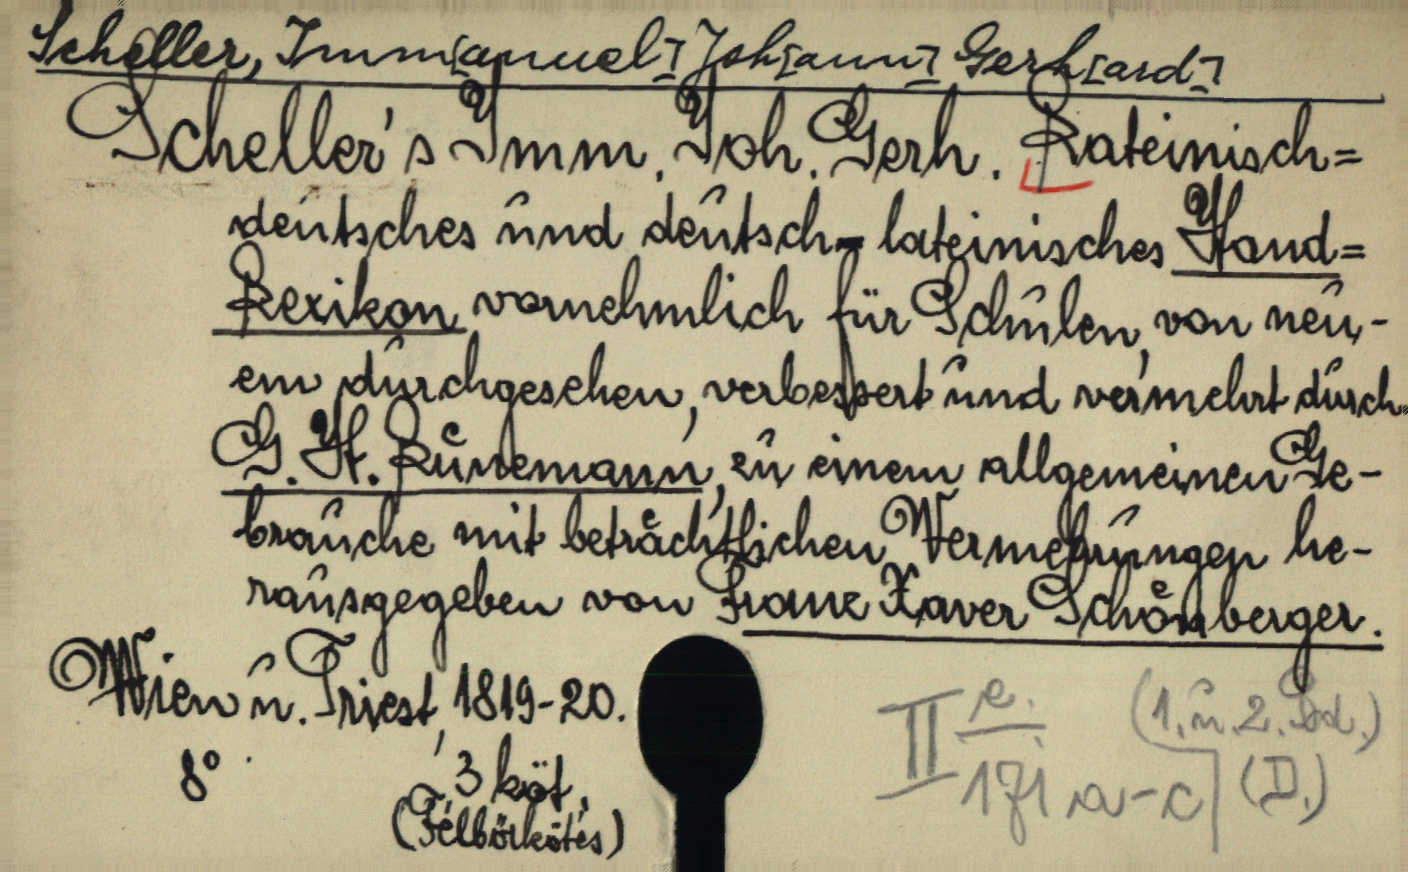 Scheller, Imm[anuel] Joh[ann] Gerh[ard]
Scheller's Imm. Joh. Gerh. Lateinisch=
deutsches und deutsch-lateinisches Hand=
Lexikon vornehmlich für Schulen, von neu-
em durchgesehen, verbessert und vermehrt durch
G. H. Lünemann, zu einem allgemeinen Ge-
brauche mit beträchtlichen Vermehrungen he-
rausgegeben von Franz Xaver Schönberger.
Wien u. Triest, 1819-20.
8° 3 köt.
(Félbőrkötés)
II e. (1. u. 2. Bd.)
171 a-c (D.)